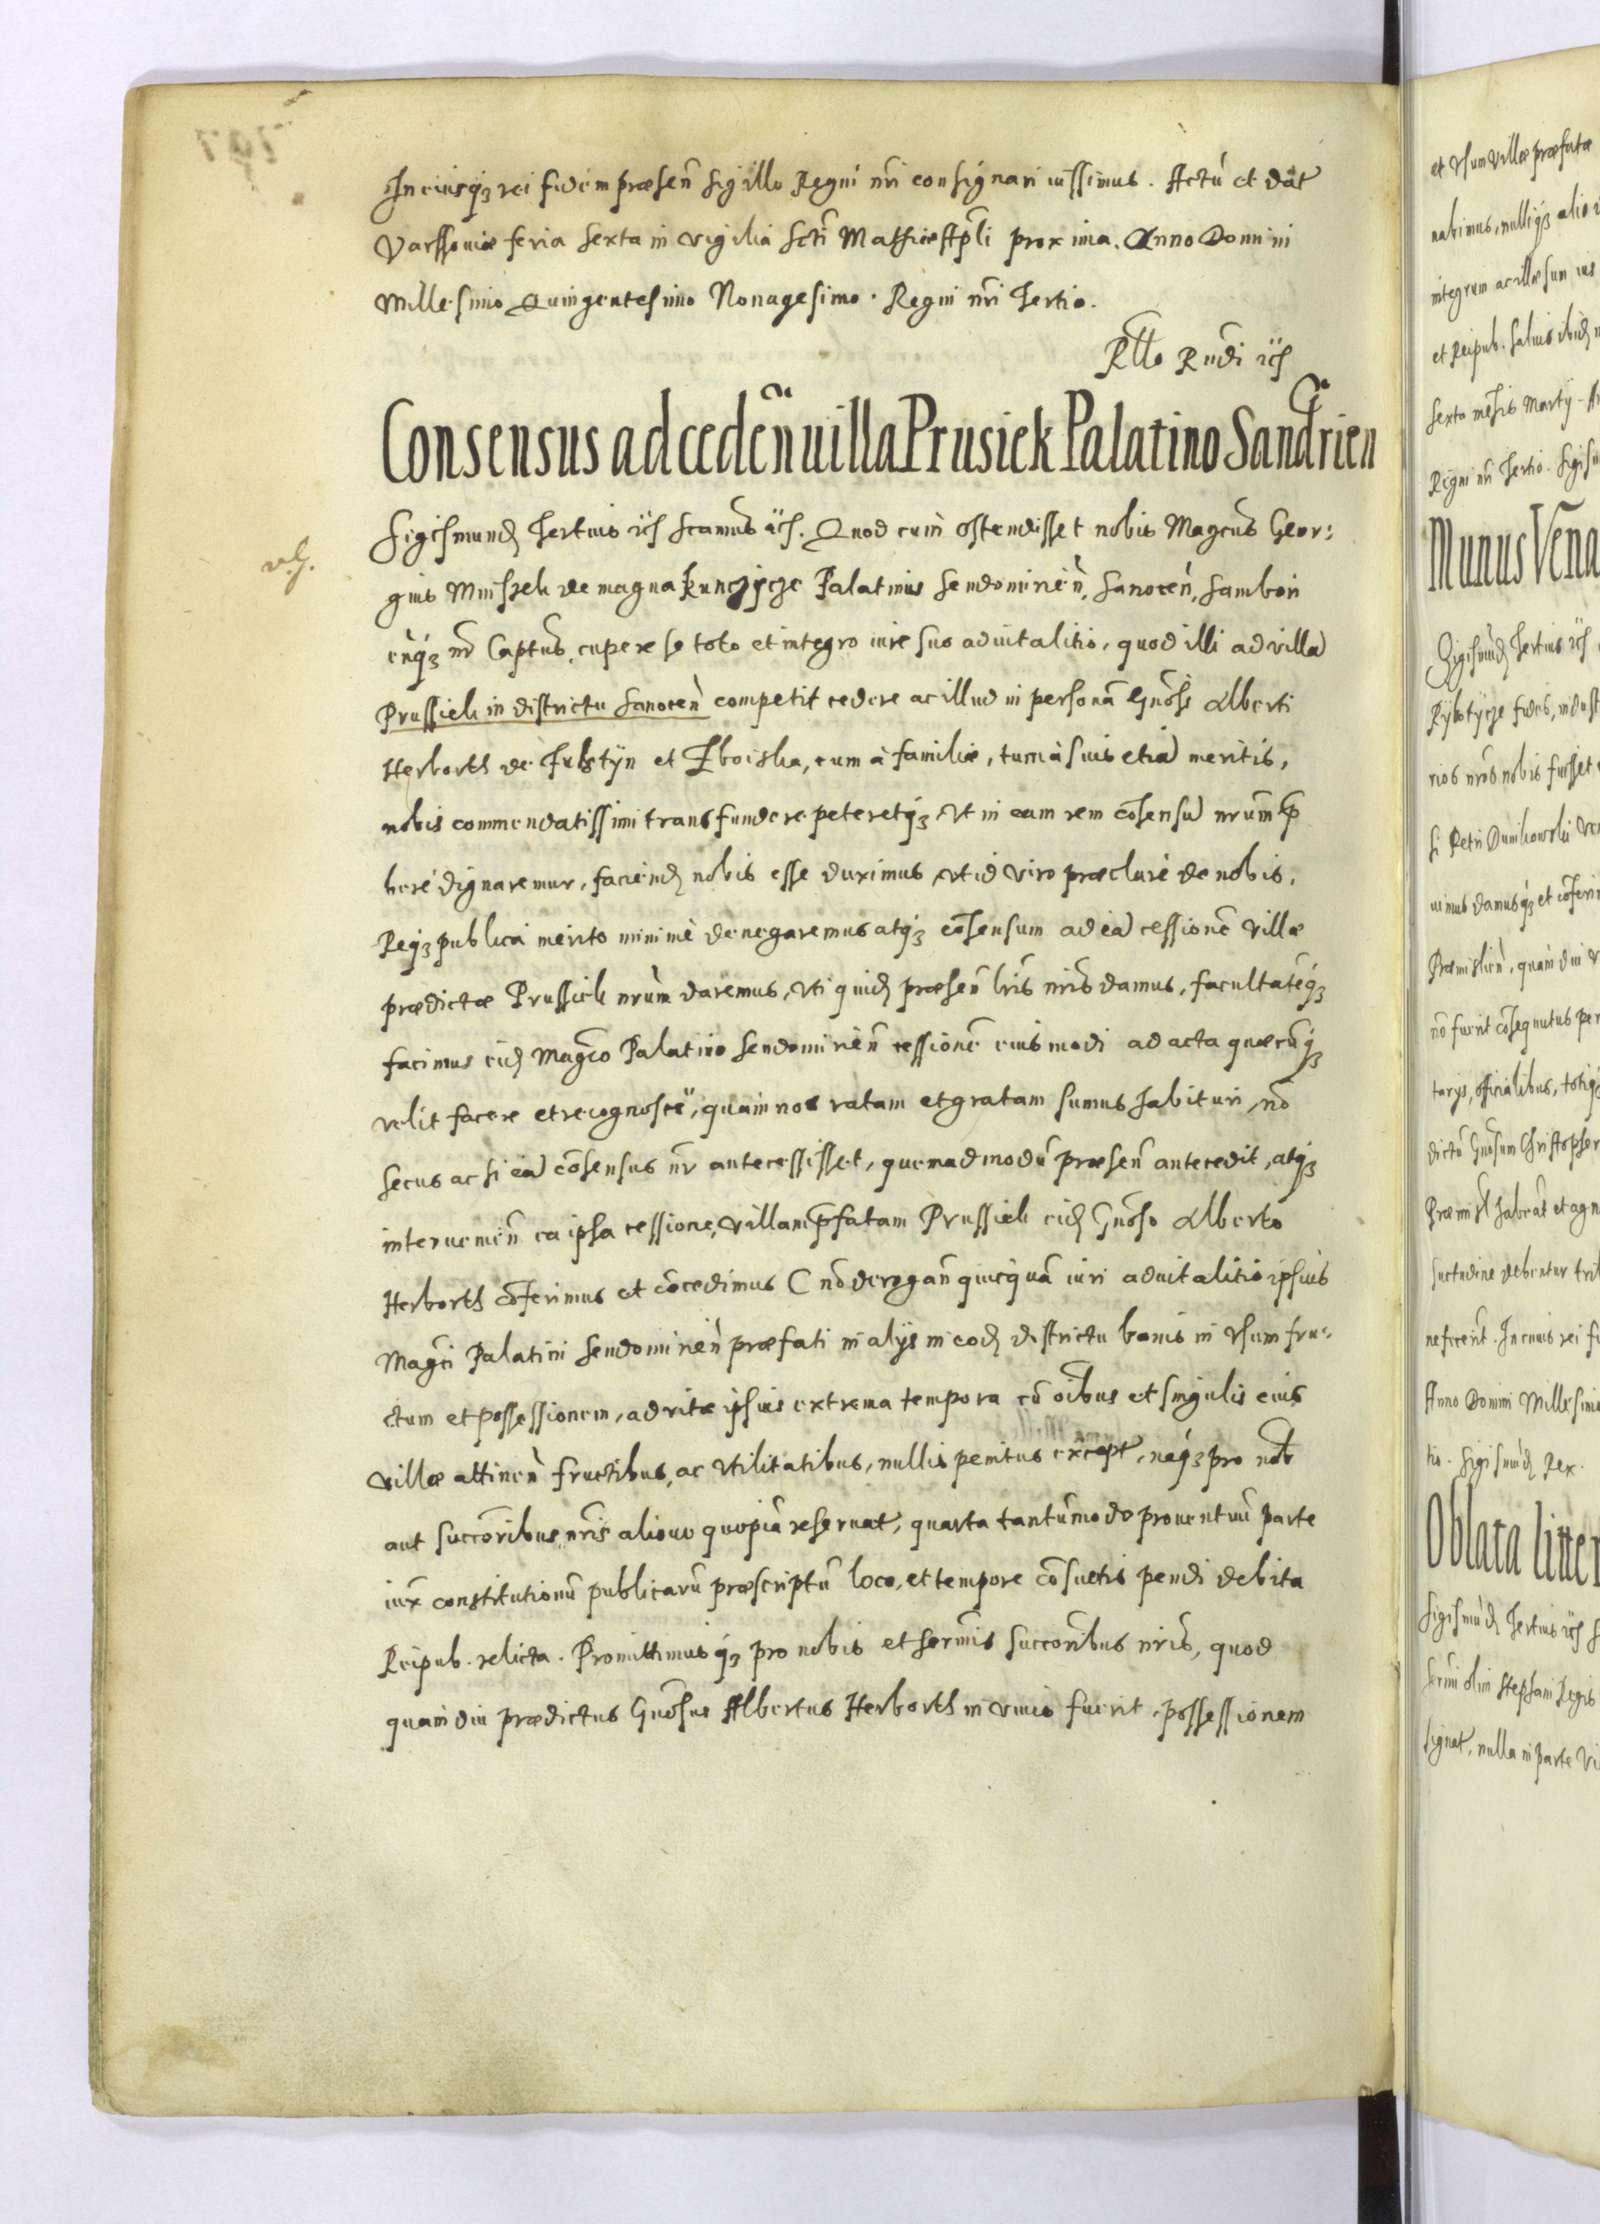 In eiusq3 rei fidem præsen̄ sigillo Regni nr̄i consignari iussimus. Actū et dat̄
Varssouiæ feria sexta in vigilia Scti Mathiæ Apl̄i proxima. Anno Domini
Millesimo Quingentesimo Nonagesimo. Regni nr̄i Tertio.
Rllo Rudi
Consensus ad ceden̄ uilla Prusiek Palatino Sandrien̄
v. G.
Sigismund Tertius Quod cum ostendisset nobis Magcus Geor:
gius Mniszek de magna Kunczycze Palatinus Sendomirien̄, Sanocen̄, Sambori
en̄q3 nr̄ Captus, cupere se toto et integro iure suo aduitalitio, quod illi ad villā
Prussiek in districtu Sanocen̄ competit cedere ac illud in personā Gn̄osi Alberti
Herborth de Fulstyn et Zboiska, cum à familiæ, tum à suis etiā meritis,
nobis commendatissimi transfundere peteretq3 vt in eam rem cōsensū nrūm p̄
bere dignaremur, faciend nobis esse duximus, vt id viro præclare de nobis,
Req3 publicá merito minimè denegaremus atq3 cōsensum ad eā cessionē villæ
prædictæ Prussiek nrūm daremus, vti quid præsen̄ lr̄is nr̄is damus, facultatēq3
facimus eid Magco Palatino Sendomirien̄ cessionē eiusmodi ad acta quæcūq3
velit facere et recognoscē, quam nos ratam et gratam sumus habituri, nō
secus ac si eā cōsensus nr̄ antecessisset, quemadmodū præsen̄ antecedit, atq3
interuenien̄ ea ipsa cessione, villam p̄fatam Prussiek eid Gnōso Alberto
Herborth cōferimus et cōcedimus ( nō derogan̄ quicquā iuri aduitalitio ipsius
Magci Palatini Sendomirien̄ præfati in alijs in eod districtu bonis in vsum fru:
ctum et possessionem, ad vitæ ipsius extrema tempora cū oībus et singulis eius
villæ attinen̄ fructibus, ac vtilitatibus, nullis penitus except̄, neq3 pro nob̄
aut succōribus nr̄is alicuo quopiā reseruat̄, quarta tantūmodo prouentuū parte
iux̄ constitutionū publicarū præscriptū loco, et tempore cōsuetis pendi debita
Reipub. relicta. Promittimusq3 pro nobis et sermis succōribus nr̄is, quod
quamdiu prædictus Gnōsus Albertus Herborth in viuis fuerit, possessionem
et vsum villæ præfatæ
nabimus, nulliq3 alio
integrum ac illæsum ius
et Reipub. saluis ibid
sexto mēsis Martij
Regni nr̄i Tertio.
Munus Vena
Sigismūd Tertius
Rybotycze fides,
rios nr̄os nobis fuisset
si Petri Dunikowski
uimus damusq3 et cōferi
Præmislien̄, quam diu
nō fuerit cōsequutus
tarijs, officialibus,
dictū Gnōsum Christophor
Præmisl habeāt et agn
suetudine debentur
neficent. In cuius rei
Anno Domini Millesimo
tio. Sigismūd Rex.
Oblata litter
Sigismūd Tertius
sermi olim Stephani Regis
signat̄, nulla in parte